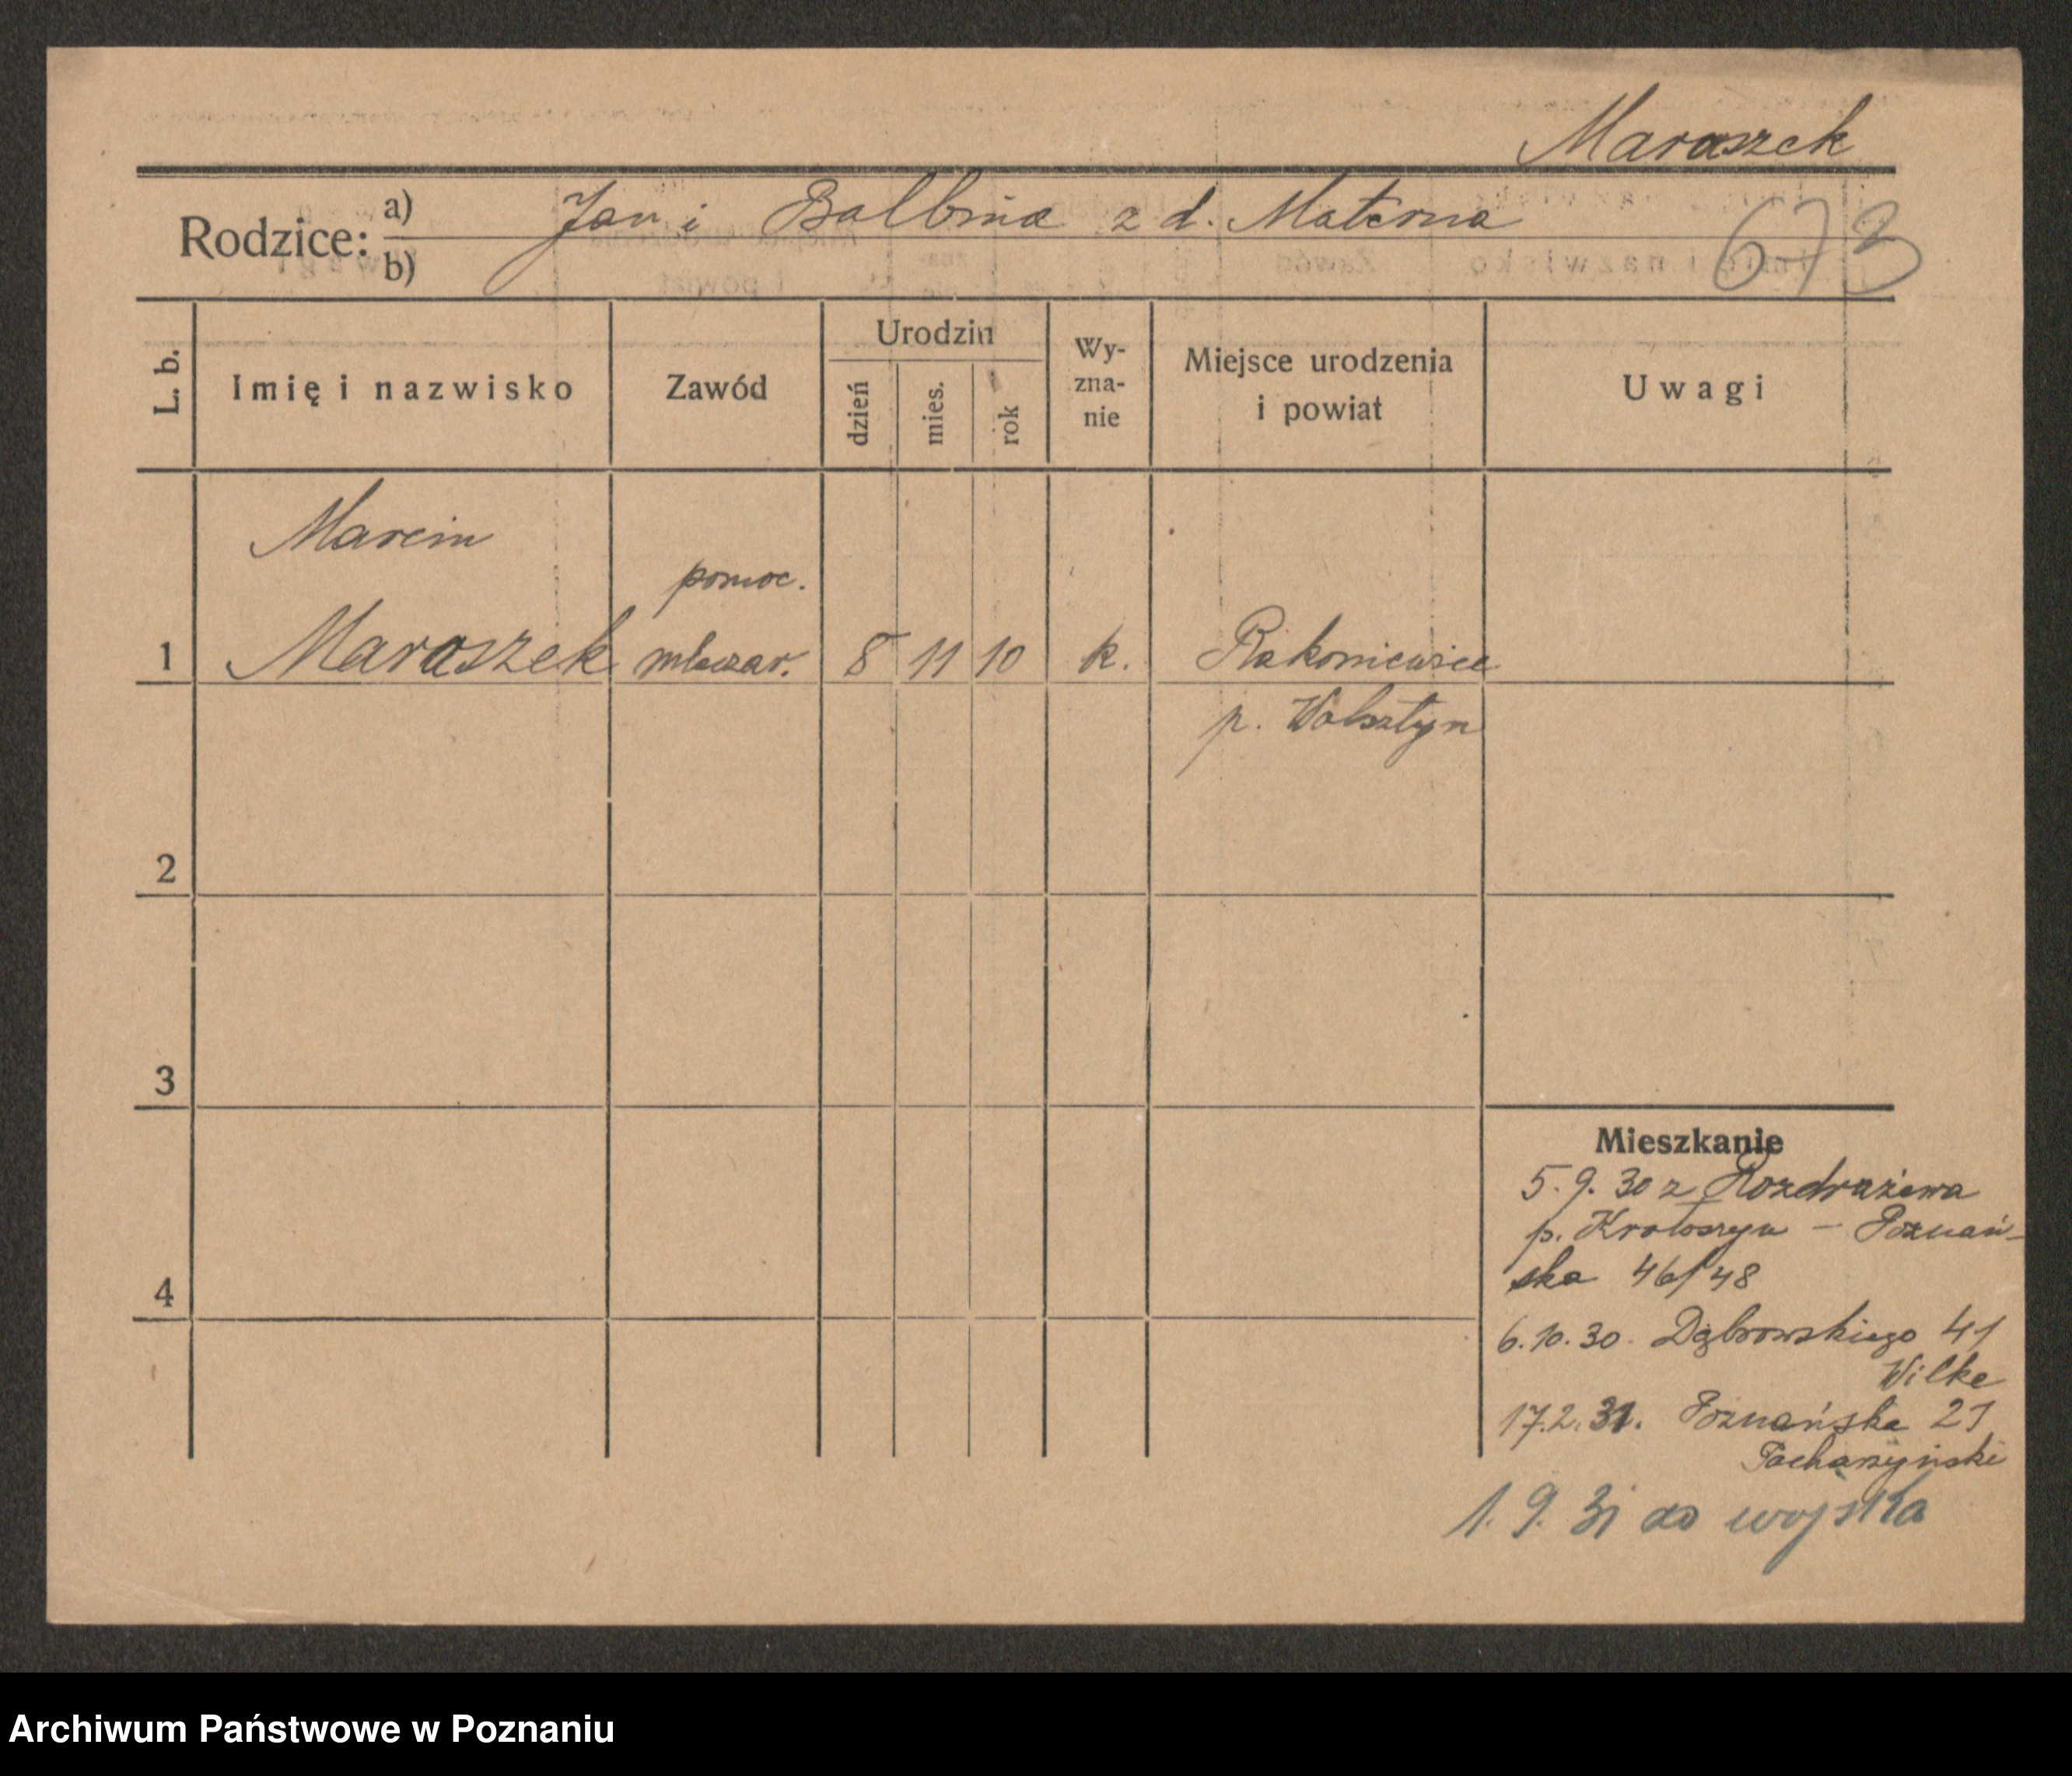 Maraszek
Rodzice: a) Jan i Balbina z d. Materna
b)
673
L. b.
Imię i nazwisko
Zawód
Urodzin
dzień
mies.
rok
Wy-
zna-
nie
Miejsce urodzenia
i powiat
Uwagi
Marcin
pomoc.
1 Maraszek mleczar. 8 11 10 k. Rakoniewice
p. Wolsztyn
2
3
4
Mieszkanie
5.9.30 z Rozdrażewa
p. Krotoszyn – Poznań-
ska 46/48
6.10.30. Dąbrowskiego 41
Wilke
17.2.31. Poznańska 21
1.9.31 do wojska
Archiwum Państwowe w Poznaniu